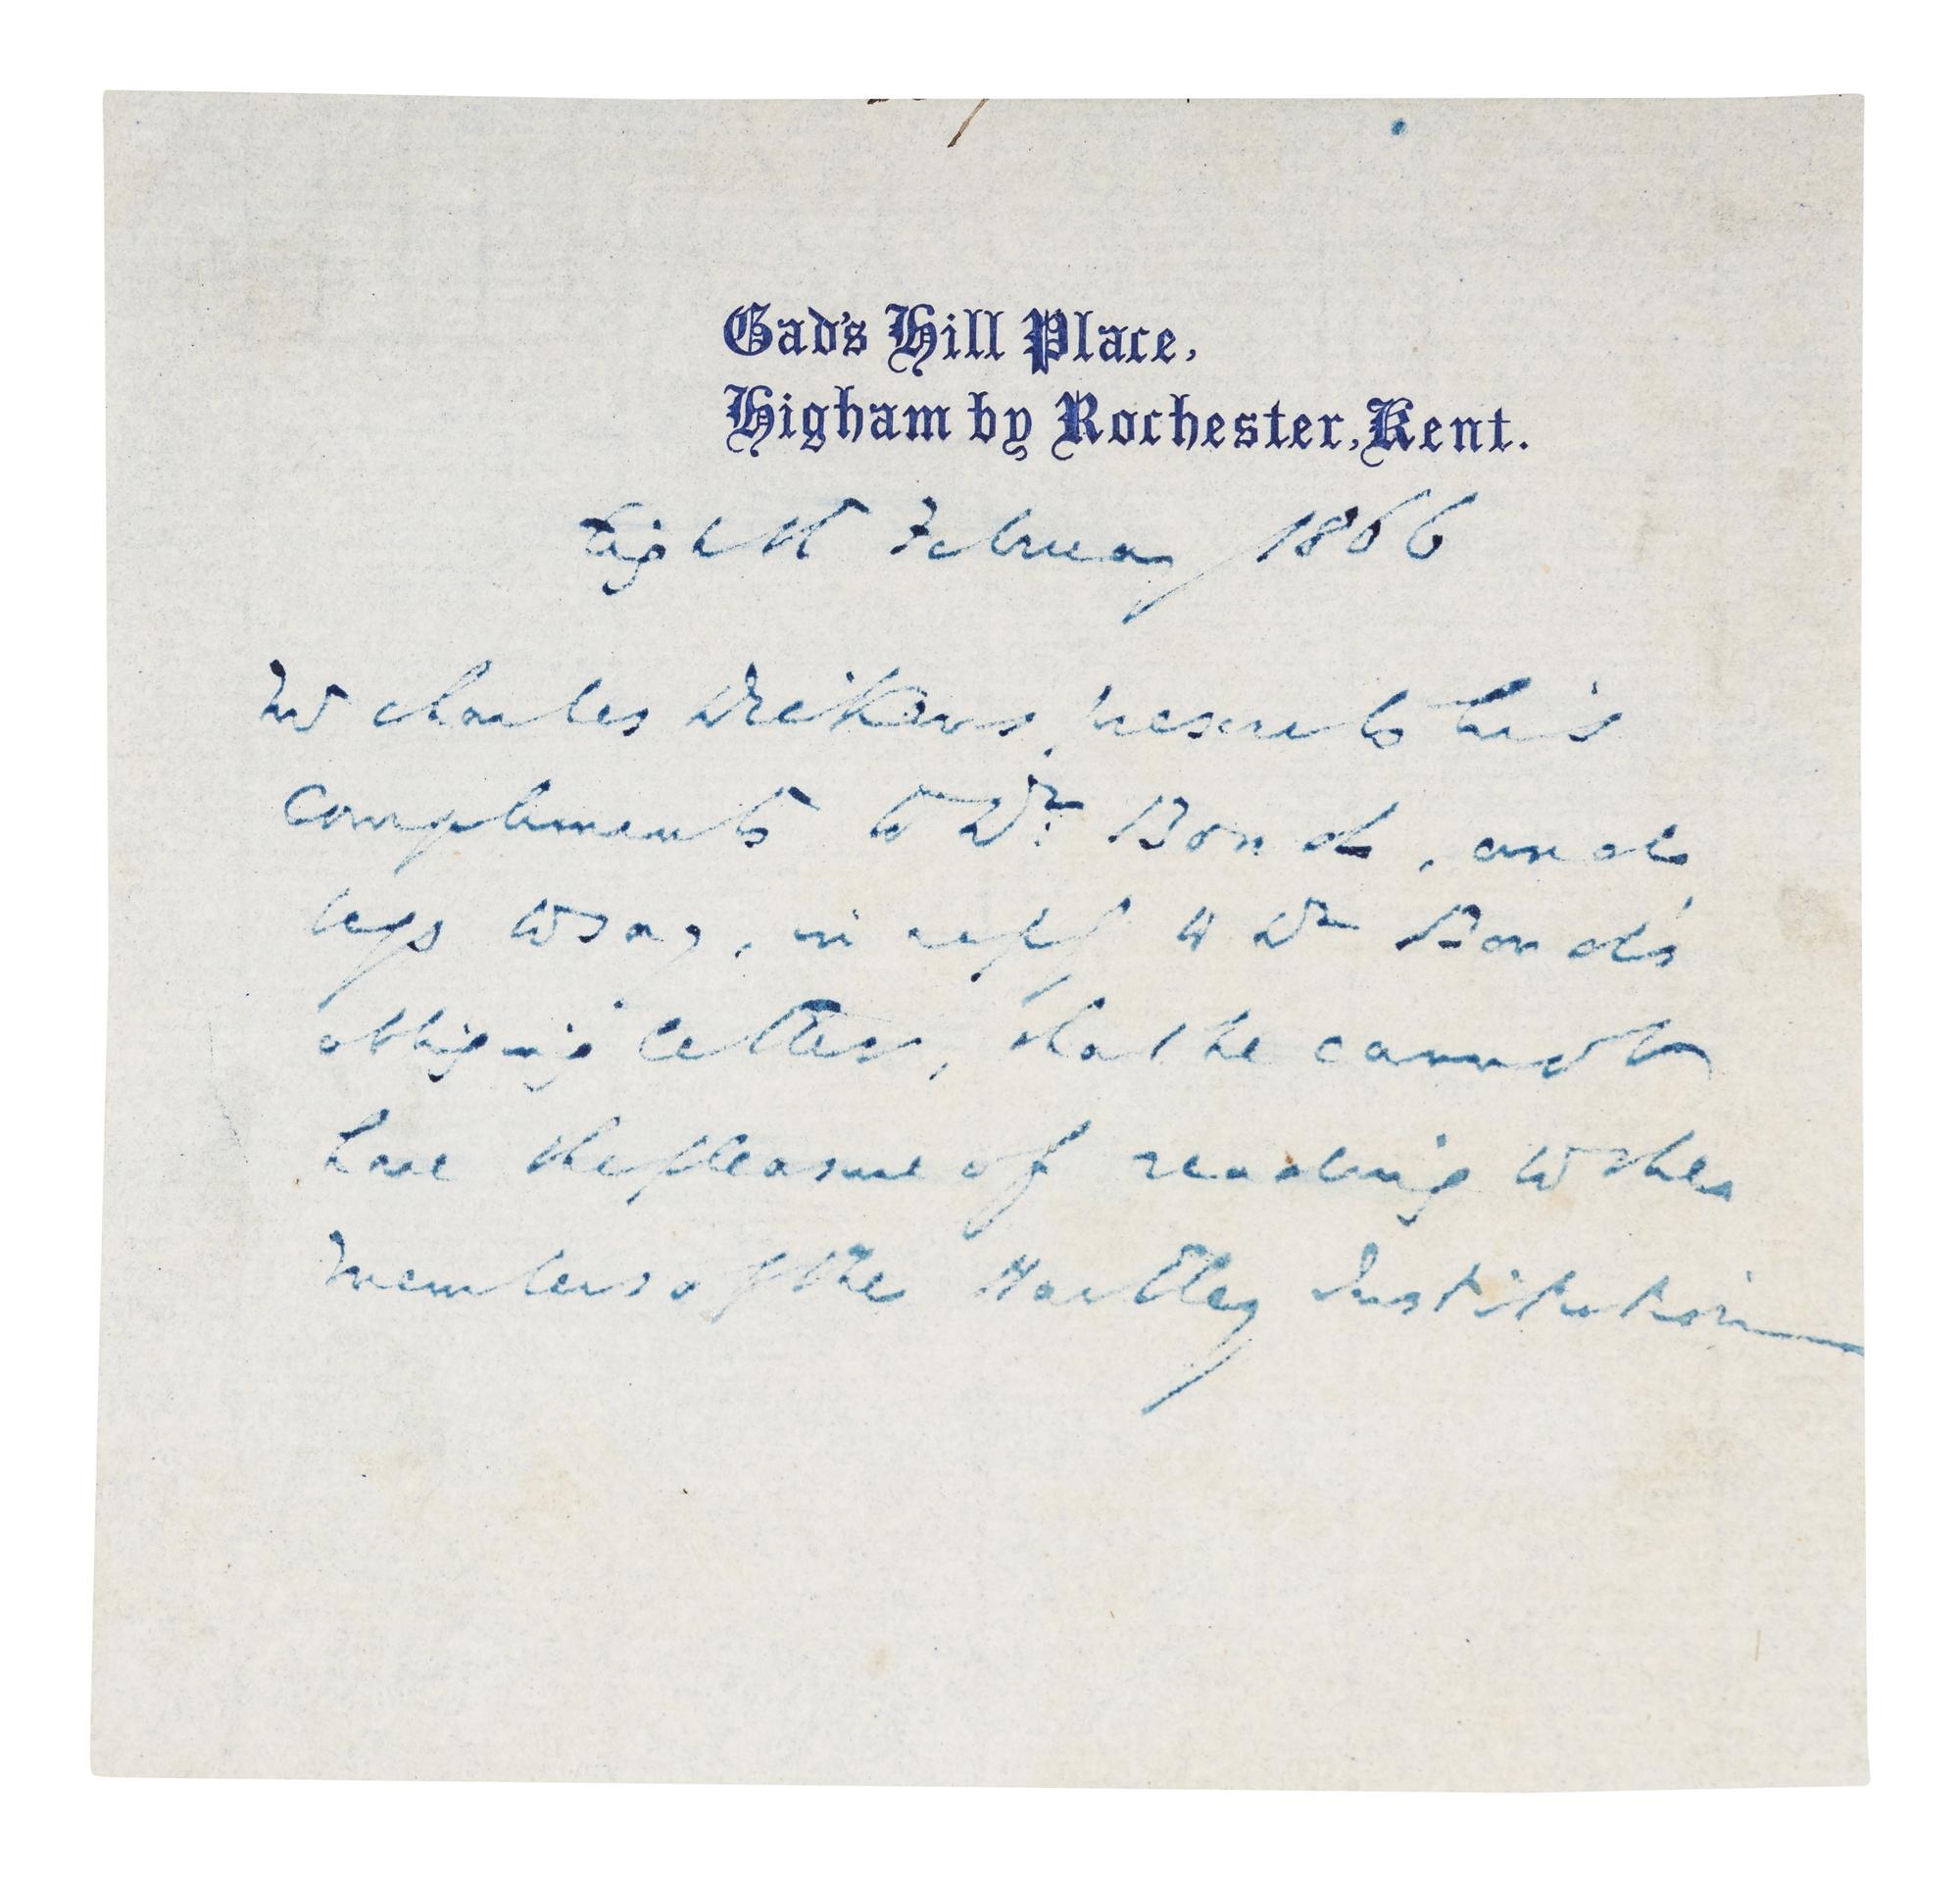 Gad's Hill Place,
Higham by Rochester, Kent.
Eighth February 1866
Mr Charles Dickens presents his
compliments to Dr. Bond, and
begs to say, in reply to Dr Bond's
obliging letter, that he cannot
have the pleasure of reading to the
members of the Hartley Institution